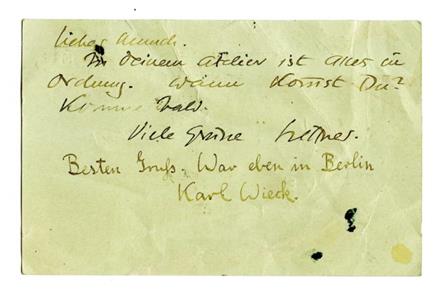 Lieber Munch.
In Deinem Atelier ist alles in
Ordnung. Wann kommst Du?
Komme bald.
Viele Grüße
Besten Gruß. War eben in Berlin
Karl Wieck.